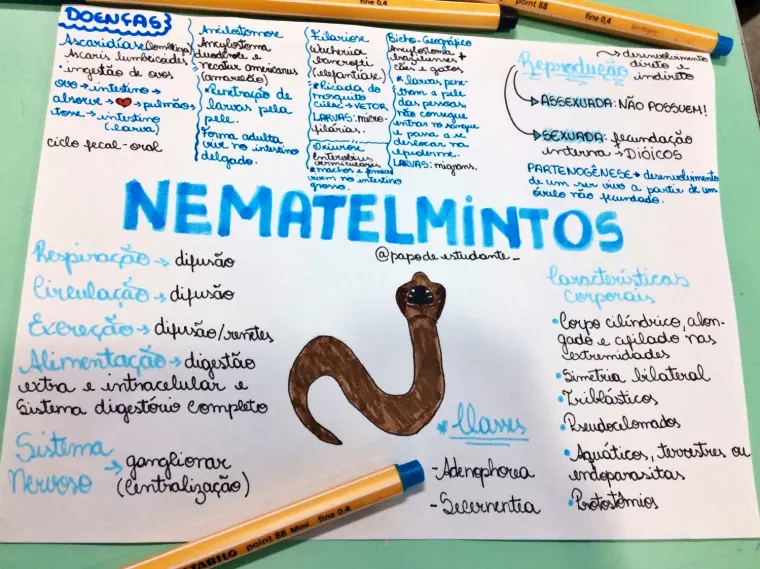 DOENÇAS
Ascaridíase (lombriga)
Ascaris lumbricoides
• ingestão de ovos
ovo → intestino →
absorve → ❤ → pulmões
tosse → intestino
(larva)
ciclo fecal-oral
Ancilostomose
Ancylostoma
duodenale e
necatur americanus
(amarelão)
* Penetração de
larvas pela
pele.
Forma adulta
vive no intestino
delgado.
Filariose
Wuchereria
bancrofti
(elefantíase)
* Picada do
mosquito
Culex → VETOR
LARVAS: micro-
filárias.
Oxiurose
Enterobius
vermiculares
* machos e fêmeas
vivem no intestino
grosso.
Bicho-Geográfico
Ancylostoma
braziliensis
cães e gatos
* larvas pene-
tram a pele
das pessoas,
não consegue
entrar no sangue
e passa a se
deslocar na
epiderme.
LARVAS: migrans.
Reprodução
→ desenvolvimento
direto e
indireto
→ ASSEXUADA: NÃO POSSUEM!
→ SEXUADA: fecundação
interna → DIÓICOS
PARTENOGÊNESE → desenvolvimento
de um ser vivo a partir de um
óvulo não fecundado.
NEMATELMINTOS
@papodeestudante_
Respiração → difusão
Circulação → difusão
Excreção → difusão/renetes
Alimentação → digestão
extra e intracelular e
Sistema digestório completo
Sistema
Nervoso → ganglionar
(centralização)
* Classes
- Adenophorea
- Secernentia
Características
corporais
• Corpo cilíndrico, alon-
gado e afilado nas
extremidades
• Simetria bilateral
• Triblásticos
• Pseudocelomados
• Aquáticos, terrestres ou
endoparasitas
• Protostômios
STABILO point 88 Mini fine 0,4
fine 0,4
point 88 fine 0,4